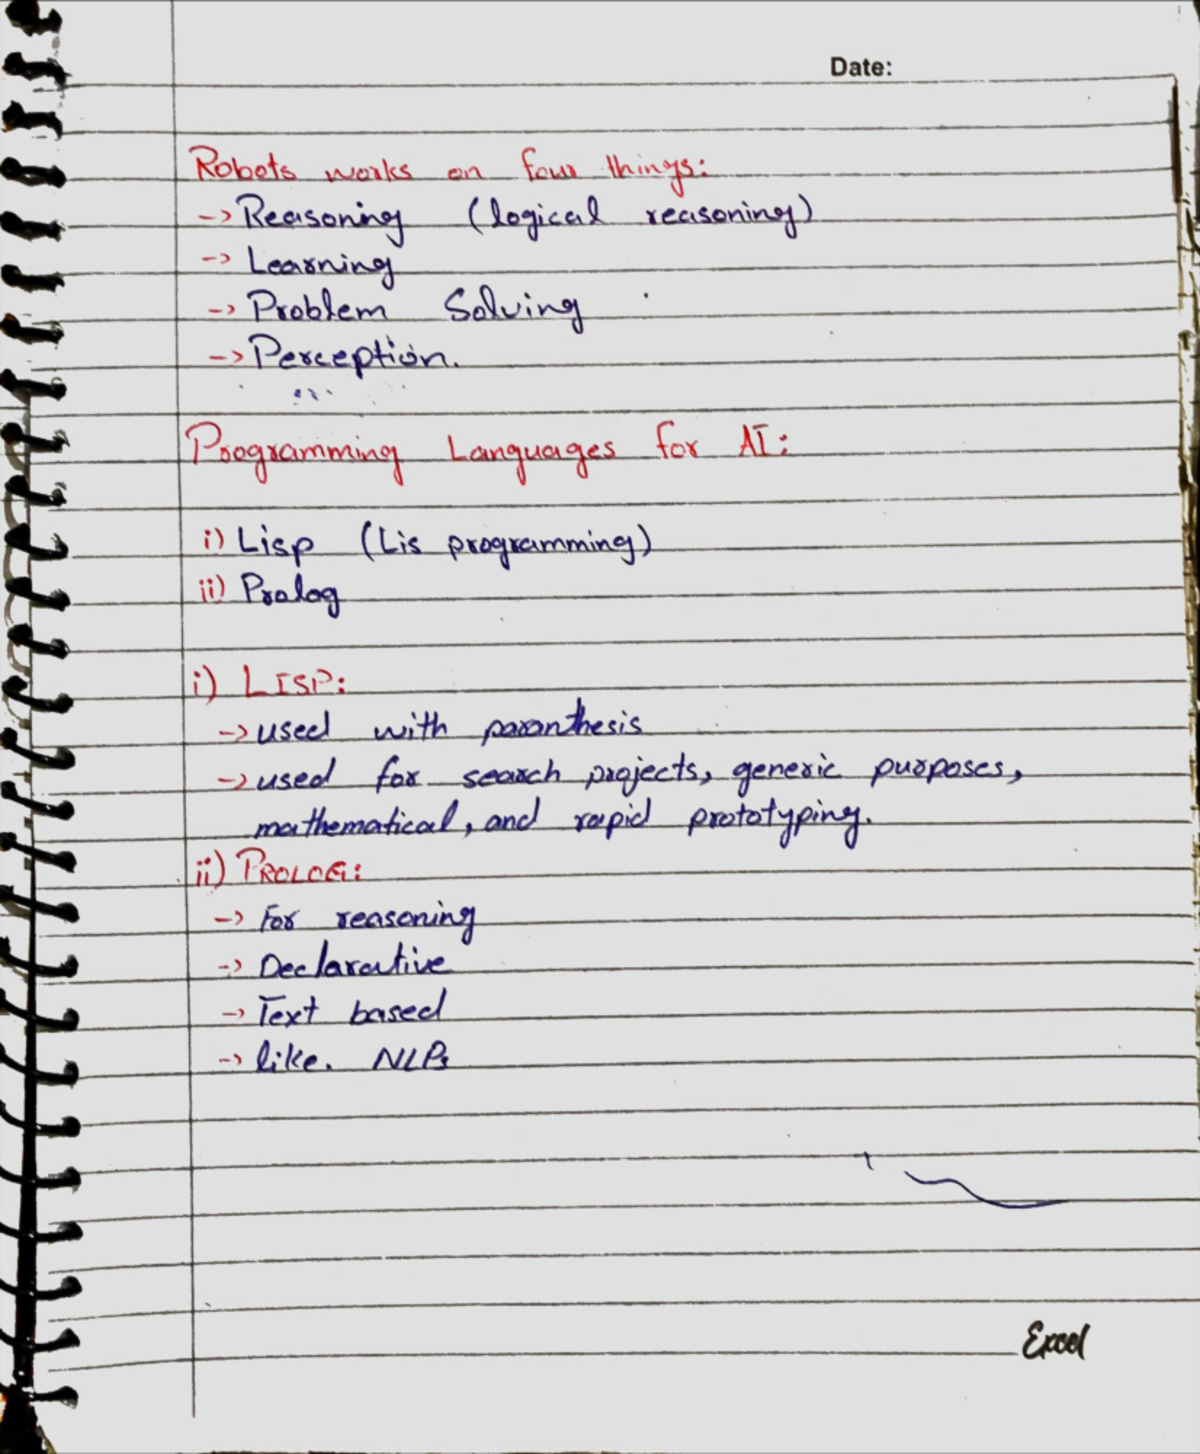 Date:
Robots works on four things:
-> Reasoning (logical reasoning)
-> Learning
-> Problem Solving
-> Perception.
Programming Languages for AI:
i) Lisp (Lis programming)
ii) Prolog
i) LISP:
-> used with paranthesis
-> used for search projects, generic purposes,
mathematical, and rapid prototyping.
ii) PROLOG:
-> For reasoning
-> Declarative
-> Text based
-> like. NLPs
Excel